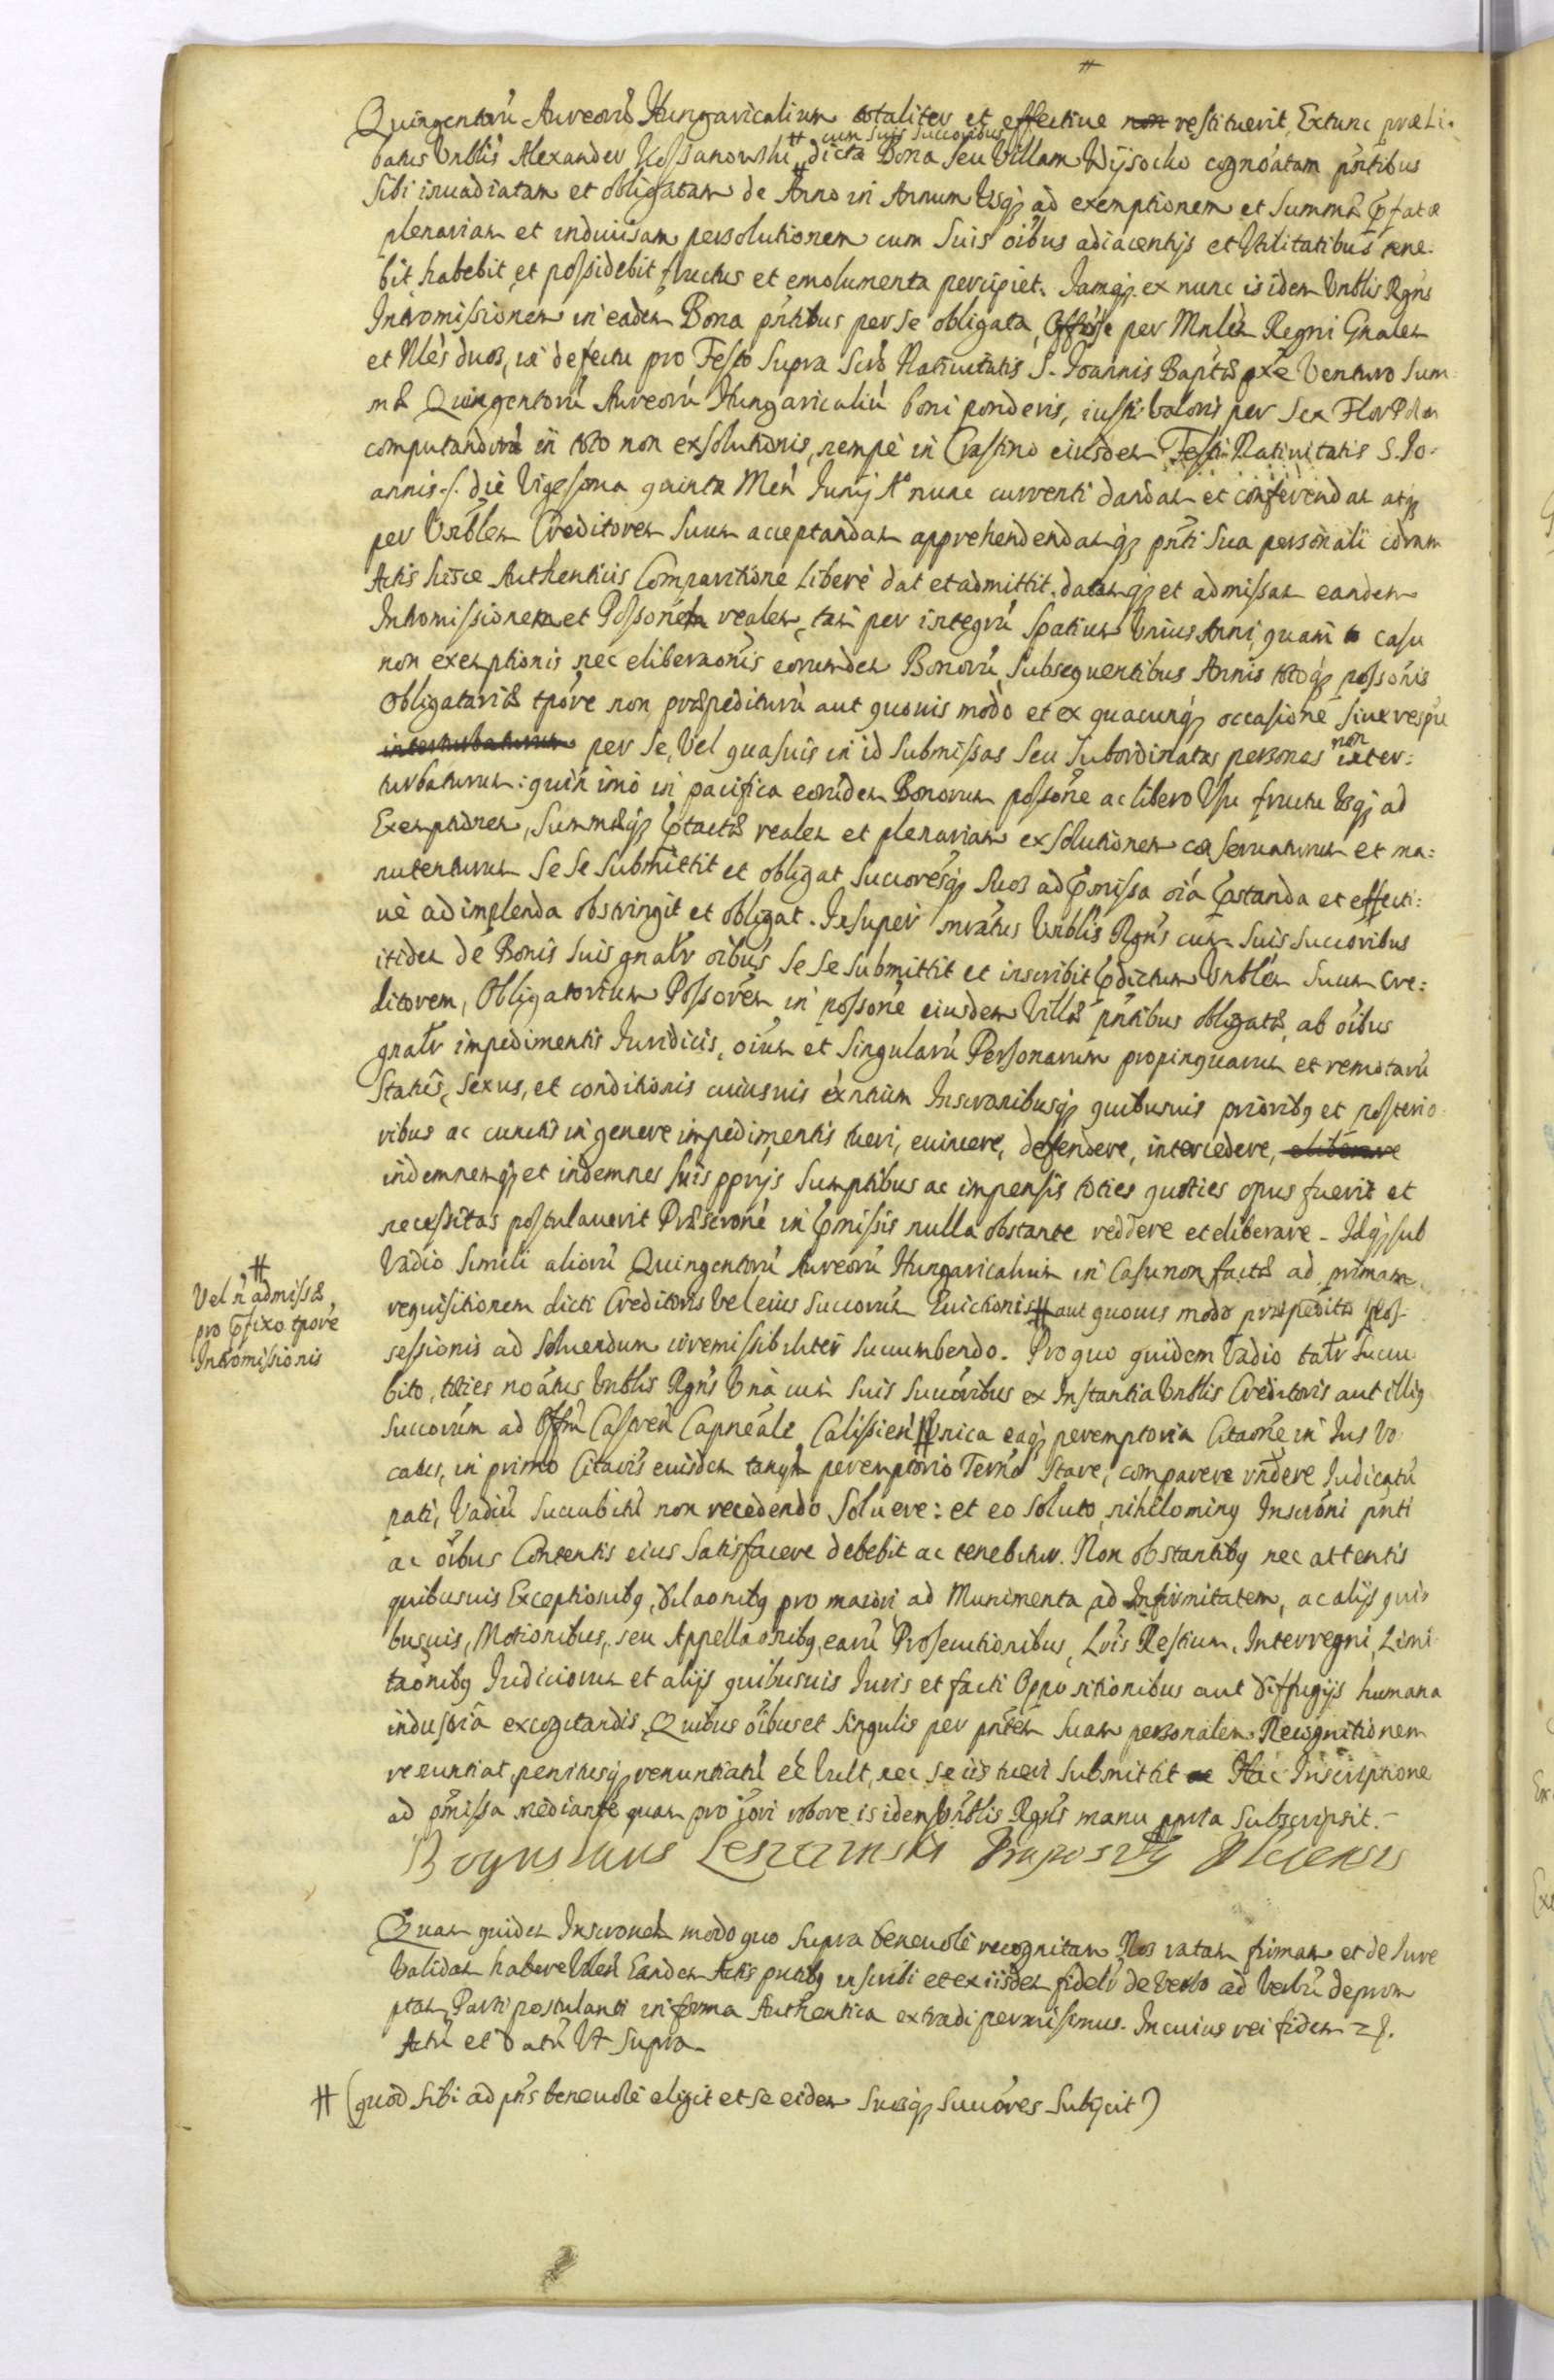 Quingentorũ Aureorũ Hungaricalium totaliter et effectiue non restituerit, Extunc præ Li-
cum suis succoribus
batus Vrblis Alexander Kossanowski # dicta Bona seu Villam Wysocko cognoatam pntibus
sibi inuadiatam et obligatam de Anno in Annum Usq ad exemptionem et Summæ pfatæ
plenariam et indiuisam persolutionem cum suis oibus adiacentijs et Vtilitatibus tene-
bit, habebit, et possidebit, fructus et emolumenta percipiet. Iamq ex nunc is idem Vrblis Rgns
Intromissionem in eadem Bona pntibus per se obligata, Offose per Mnlem Regni Gnalem
et Nles duos, in defectu pro Festo supra scro Natiuitatis S. Joannis Baptæ pxe Venturo Sum-
mæ Quingentorũ Aureorũ Hungaricaliũ boni ponderis, iusti valoris per Sex Flor Pol
computandorũ in toto non exsolutionis, nempe in Crastino eiusdem Festi Natiuitatis S. Jo-
annis .s. die Vigesima quinta Men Junij Aº nunc currenti dandam et conferendam atq
per Vrblem Creditorem suum acceptandam apprehendendamq pnti sua personali coram
Actis hisce Authenticis Comparitione Libere dat et admittit. datamq et admissam eandem
Intromissionem et Possonem realem, tam per integrũ spatium Vnius Anni, quam casu
non exemptionis nec eliberaonis eorundem Bonorũ, subsequentibus Annis totoq possonis
Obligatariæ tpore non præpediturũ aut quouis modo et ex quacunq occasione siue respu
interturbaturum per se, Vel quasuis in id submissas seu subordinatas personas non inter-
turbaturum: quin imo in pacifica eorundem Bonorum possone ac libero Vsu fructu Usq ad
Exemptionem, Summæq ptactæ realem et plenariam exsolutionem conseruaturum et ma-
nutenturum se se submittit et obligat succoresq suos ad pmissa oia pstanda et effecti-
ue adimplenda obstringit et obligat. Insuper mratus Vrblis Rgns cum suis succoribus
itidem de Bonis suis gnalr oibus se se submittit et inscribit pdictum Vrblem suum Cre-
ditorem, Obligatorium Possorem in possone eiusdem Villæ pntibus obligatæ ab oibus
gnalr impedimentis Juridicis, oium et singularũ Personarum propinquarum et remotarũ
Status, sexus, et conditionis cuiusuis exntium Inscronibusq quibusuis priorib9 et posterio-
ribus ac cunctis in genere impedimentis tueri, euincere, defendere, intercedere, eliberare
indemnemq et indemnes suis pprijs sumptibus ac impensis toties quoties opus fuerit et
necessitas postulauerit Præscrone in pmissis nulla obstante reddere et eliberare. Idq sub
Vadio simili aliorũ Quingentorũ Aureorũ Hungaricalium in Casu non factæ ad primam
requisitionem dicti Creditoris vel eius succorum Euictionis # aut quouis modo præpeditæ Pos-
#
Vel ñ admissæ
pro pfixo tpore
Intromissionis
sessionis ad soluendum irremissibiliter succumbendo. Pro quo quidem Vadio talr succu-
bito, toties noatus Vrblis Rgns Vna cum suis succoribus ex Instantia Vrblis Creditoris aut illi9
succorum ad Offm Castren Capneale Calissien # Vnica eaq peremptoria Citaone in Jus Vo-
catus, in primo Citaonis eiusdem tanqm peremptorio Termo Stare, comparere rndere Judicatũ
pati, Vadiũ succubitũ non recedendo soluere: et eo soluto, nihilomin9 Inscroni pnti
ac oibus Contentis eius satisfacere debebit ac tenebitur. Non obstantib9 nec attentis
quibusuis Exceptionib9, dilaonib9 pro maiori, ad Munimenta, ad Infirmitatem, ac alijs qui-
busuis, Motionibus, seu Appellaonib9, earũ Prosecutionibus, Lris Restium, Interregni, Limi-
taonib9 Judiciorum et alijs quibusuis Juris et facti Oppositionibus aut diffugijs humana
industria excogitandis. Quibus oibus et singulis per pntem suam personalem Recognitionem
renuntiat, penitusq renuntiatũ ee vult, nec se iis tueri submittit Hac Inscriptione
ad pmissa mediante quam pro iori robore is idem Vrblis Rgns manu ppria subscripsit.
Boguslaus Leszczinski Præposit9 Plocensis
Quam quidem Inscronem modo quo supra beneuole recognitam Nos ratam firmam et de Jure
Validam habere Volen Eandem Actis pntib9 inscribi et ex iisdem fidelr de Verbo ad Verbũ deprom-
ptam, Parti postulanti in forma Authentica extradi permisimus. In cuius rei fidem
Actũ et Datũ Vt Supra
# (quod sibi ad pns beneuole eligit et se eidem suosq succores subijcit)